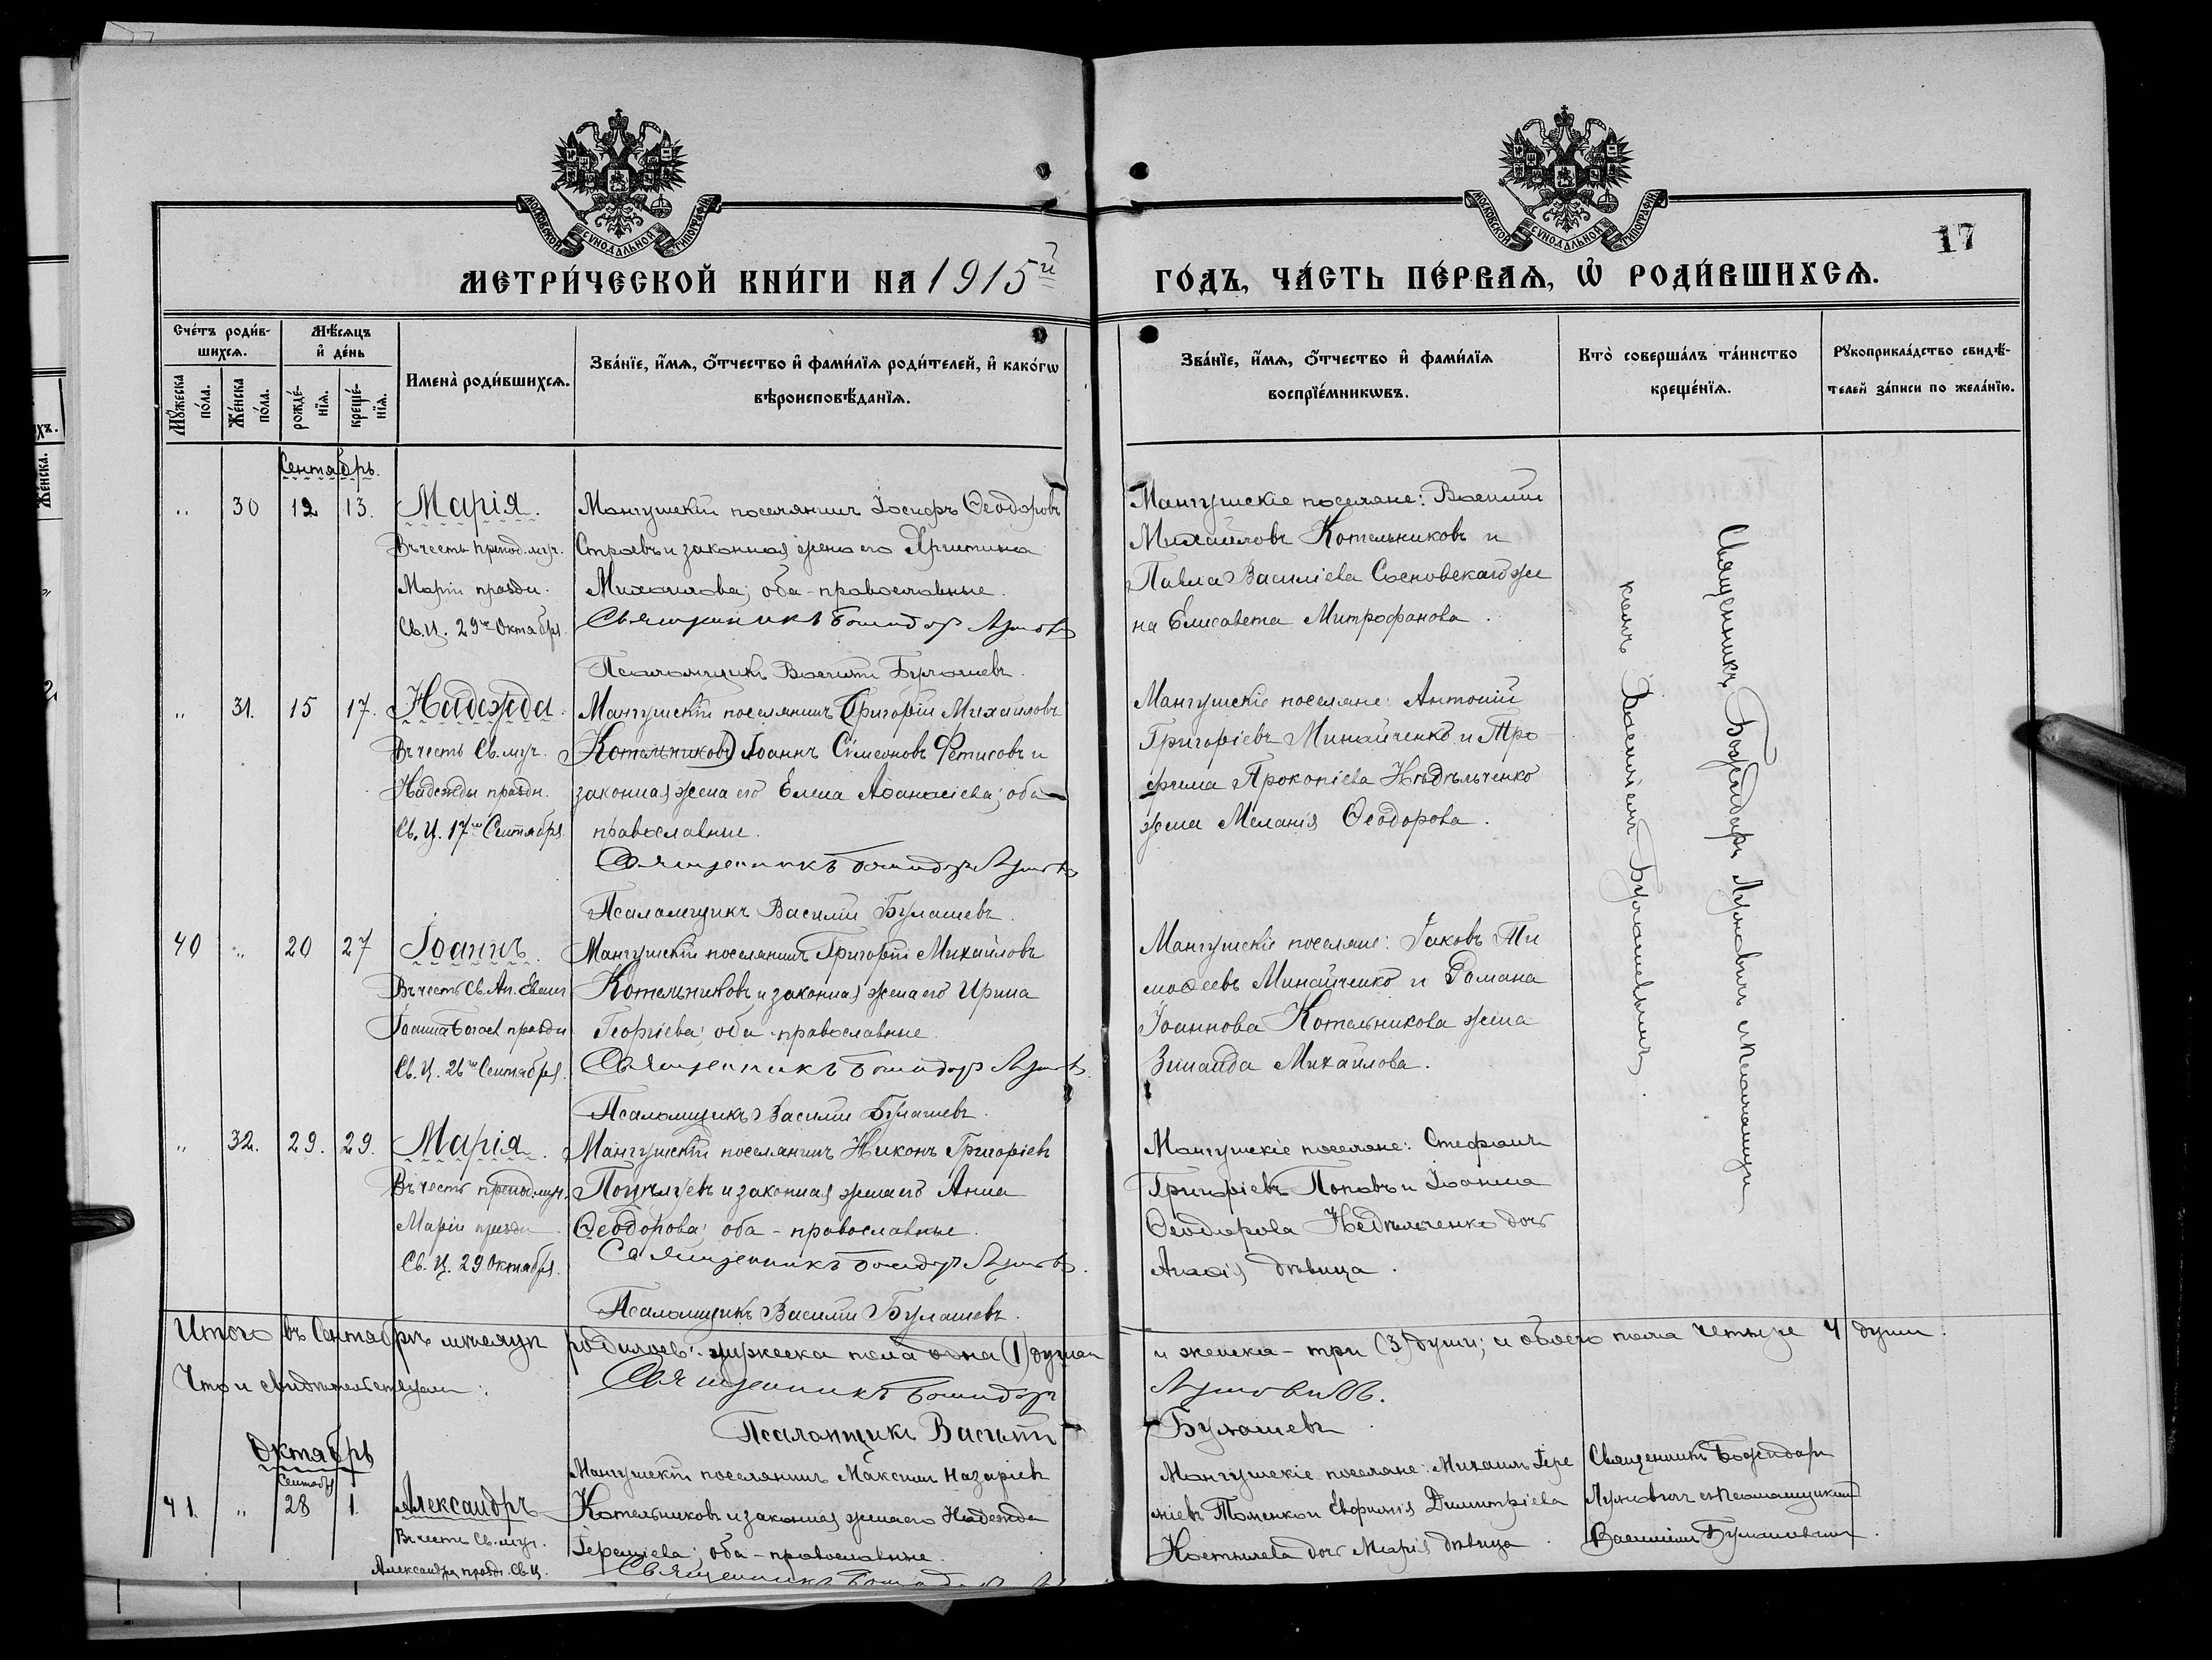 МОСКОВСКОЙ СѴНОДАЛЬНОЙ ТИПОГРАФІИ
МОСКОВСКОЙ СѴНОДАЛЬНОЙ ТИПОГРАФІИ
17
МЕТРИ́ЧЕСКОЙ КНИ́ГИ НА 1915й ГО́ДЪ, ЧА́СТЬ ПЕ́РВАѦ, Ѡ҆ РОДИ́ВШИХСѦ.
Сче́тъ роди́в-
шихсѧ.
Мꙋ́жеска по́ла.
Же́нска по́ла.
Мѣ́сѧцъ
и҆ де́нь
рожде́-
нїѧ.
креще́-
нїѧ.
Имена̀ роди́вшихсѧ.
Зва́нїе, и҆́мѧ, ѻ҆́тчество и҆ фами́лїѧ роди́телей, и҆ како́гѡ
вѣроисповѣ́данїѧ.
Зва́нїе, и҆́мѧ, ѻ҆́тчество и҆ фами́лїѧ
воспрїе́мникѡвъ.
Кто̀ соверша́лъ та́инство
креще́нїѧ.
Рꙋкоприкла́дство свидѣ́-
телей за́писи по жела́нїю.
Сентябрь.
„ 30 12 13. Марія.
Въ честь препод. муч.
Маріи праздн.
Св. Ц. 29го Октября.
Мангушскій поселянинъ Іосифъ Ѳеодоровъ
Строевъ и законная жена его Христина
Михаилова; оба - православные.
Священникъ Божидаръ
Псаломщикъ Василій Булашевъ.
Мангушскіе поселяне: Василій
Михайловъ Котельниковъ и
Павла Василіева Сосновскаго же
на Елисавета Митрофанова.
Священникъ Божидаръ Луновичъ съ псаломщи
комъ Василіемъ Булашевымъ.
„ 31. 15 17. Надежда.
Въ честь Св. муч.
Надежды праздн.
Св. Ц. 17го Сентября.
Мангушскій поселянинъ Григорій Михаиловъ
Котельниковъ Іоаннъ Сѵмеоновъ Фетисовъ и
законная жена его Елена Аѳанасіева; оба
православные.
Священникъ Божидаръ
Псаломщикъ Василій Булашевъ.
Мангушскіе поселяне: Антоній
Григоріевъ Минайченко и Тро
фима Прокопіева Недѣльченко
жена Меланія Ѳеодорова.
40 „ 20 27 Іоаннъ.
Въ честь Св. Ап. Еванг.
Іоанна Богосл. праздн.
Св. Ц. 26го Сентября.
Мангушскій поселянинъ Григорій Михайловъ
Котельниковъ и законная жена его Ирина
Георгіева; оба - православные.
Священникъ Божидаръ
Псаломщикъ Василій Булашевъ.
Мангушскіе поселяне: Іаковъ Ти
моѳеевъ Минайченко и Романа
Іоаннова Котельникова жена
Зинаида Михайлова.
„ 32. 29. 29. Марія.
Въ честь препод. муч.
Маріи праздн.
Св. Ц. 29 Октября.
Мангушскій поселянинъ Никонъ Григоріевъ
Поцѣлуевъ и законная жена его Анна
Ѳеодорова; оба - православные.
Священникъ Божидаръ
Псаломщикъ Василій Булашевъ.
Мангушскіе поселяне: Стефанъ
Григоріевъ Поповъ и Іоанна
Ѳеодорова Недѣльченко дочь
дѣвица.
Итого въ Сентябрѣ мѣсяцѣ родилось: мужеска пола одна (1) душа и женска - три (3) души; а обоего пола четыре 4 души.
Что и свидѣтельствуемъ: Священникъ Божидаръ Луновичъ.
Псаломщикъ Василій Булашевъ
Октябрь
Сентябр
41. „ 28 1. Александръ
Въ честь Св. муч.
Александра праздн. Св. Ц.
Мангушскій поселянинъ Максимъ Назаріевъ
Котельниковъ и законная жена его Надежда
Іереміева; оба - православные.
Священникъ Божидаръ
Мангушскіе поселяне: Михаилъ Іере
міевъ Томенко и Евфимія Димитріева
дочь Марія дѣвица.
Священникъ Божидаръ
Луновичъ съ псаломщикомъ
Василіемъ Булашевымъ.